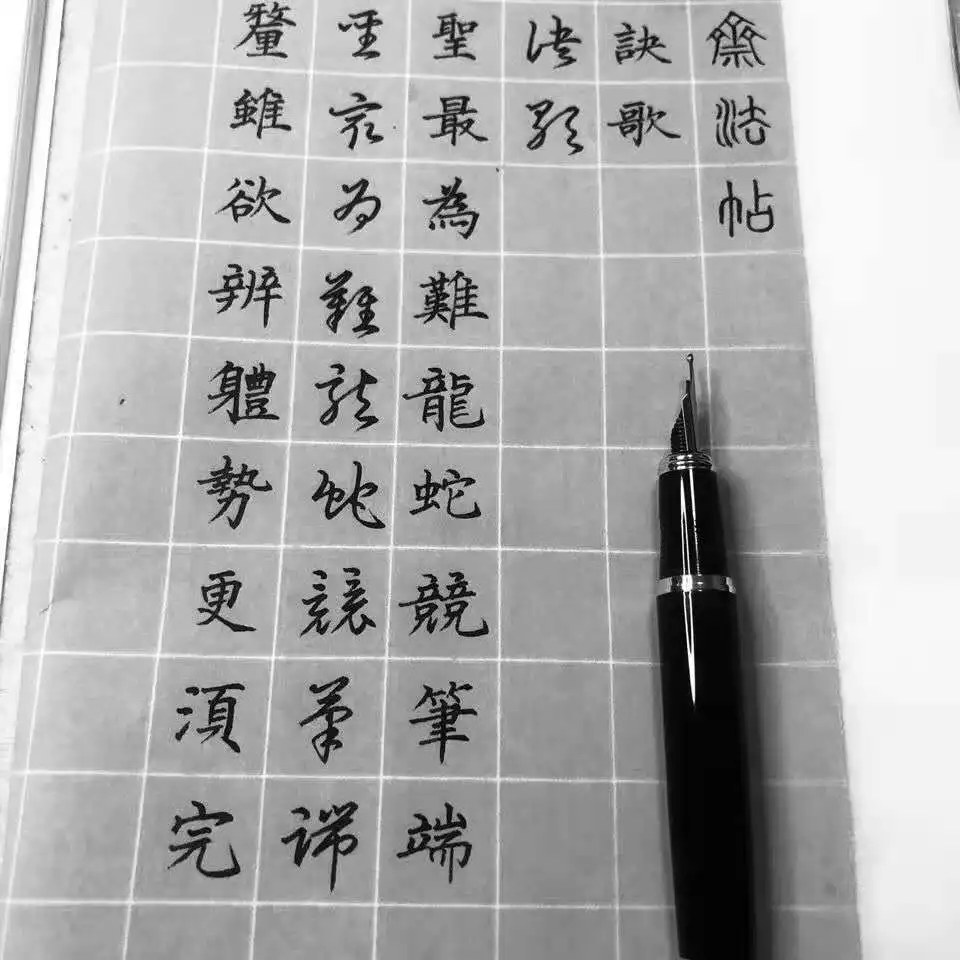 齋法帖
訣歌
訣歌
聖最為難龍蛇競筆端
聖最為難龍蛇競筆端
釐雖欲辨體勢更湏完